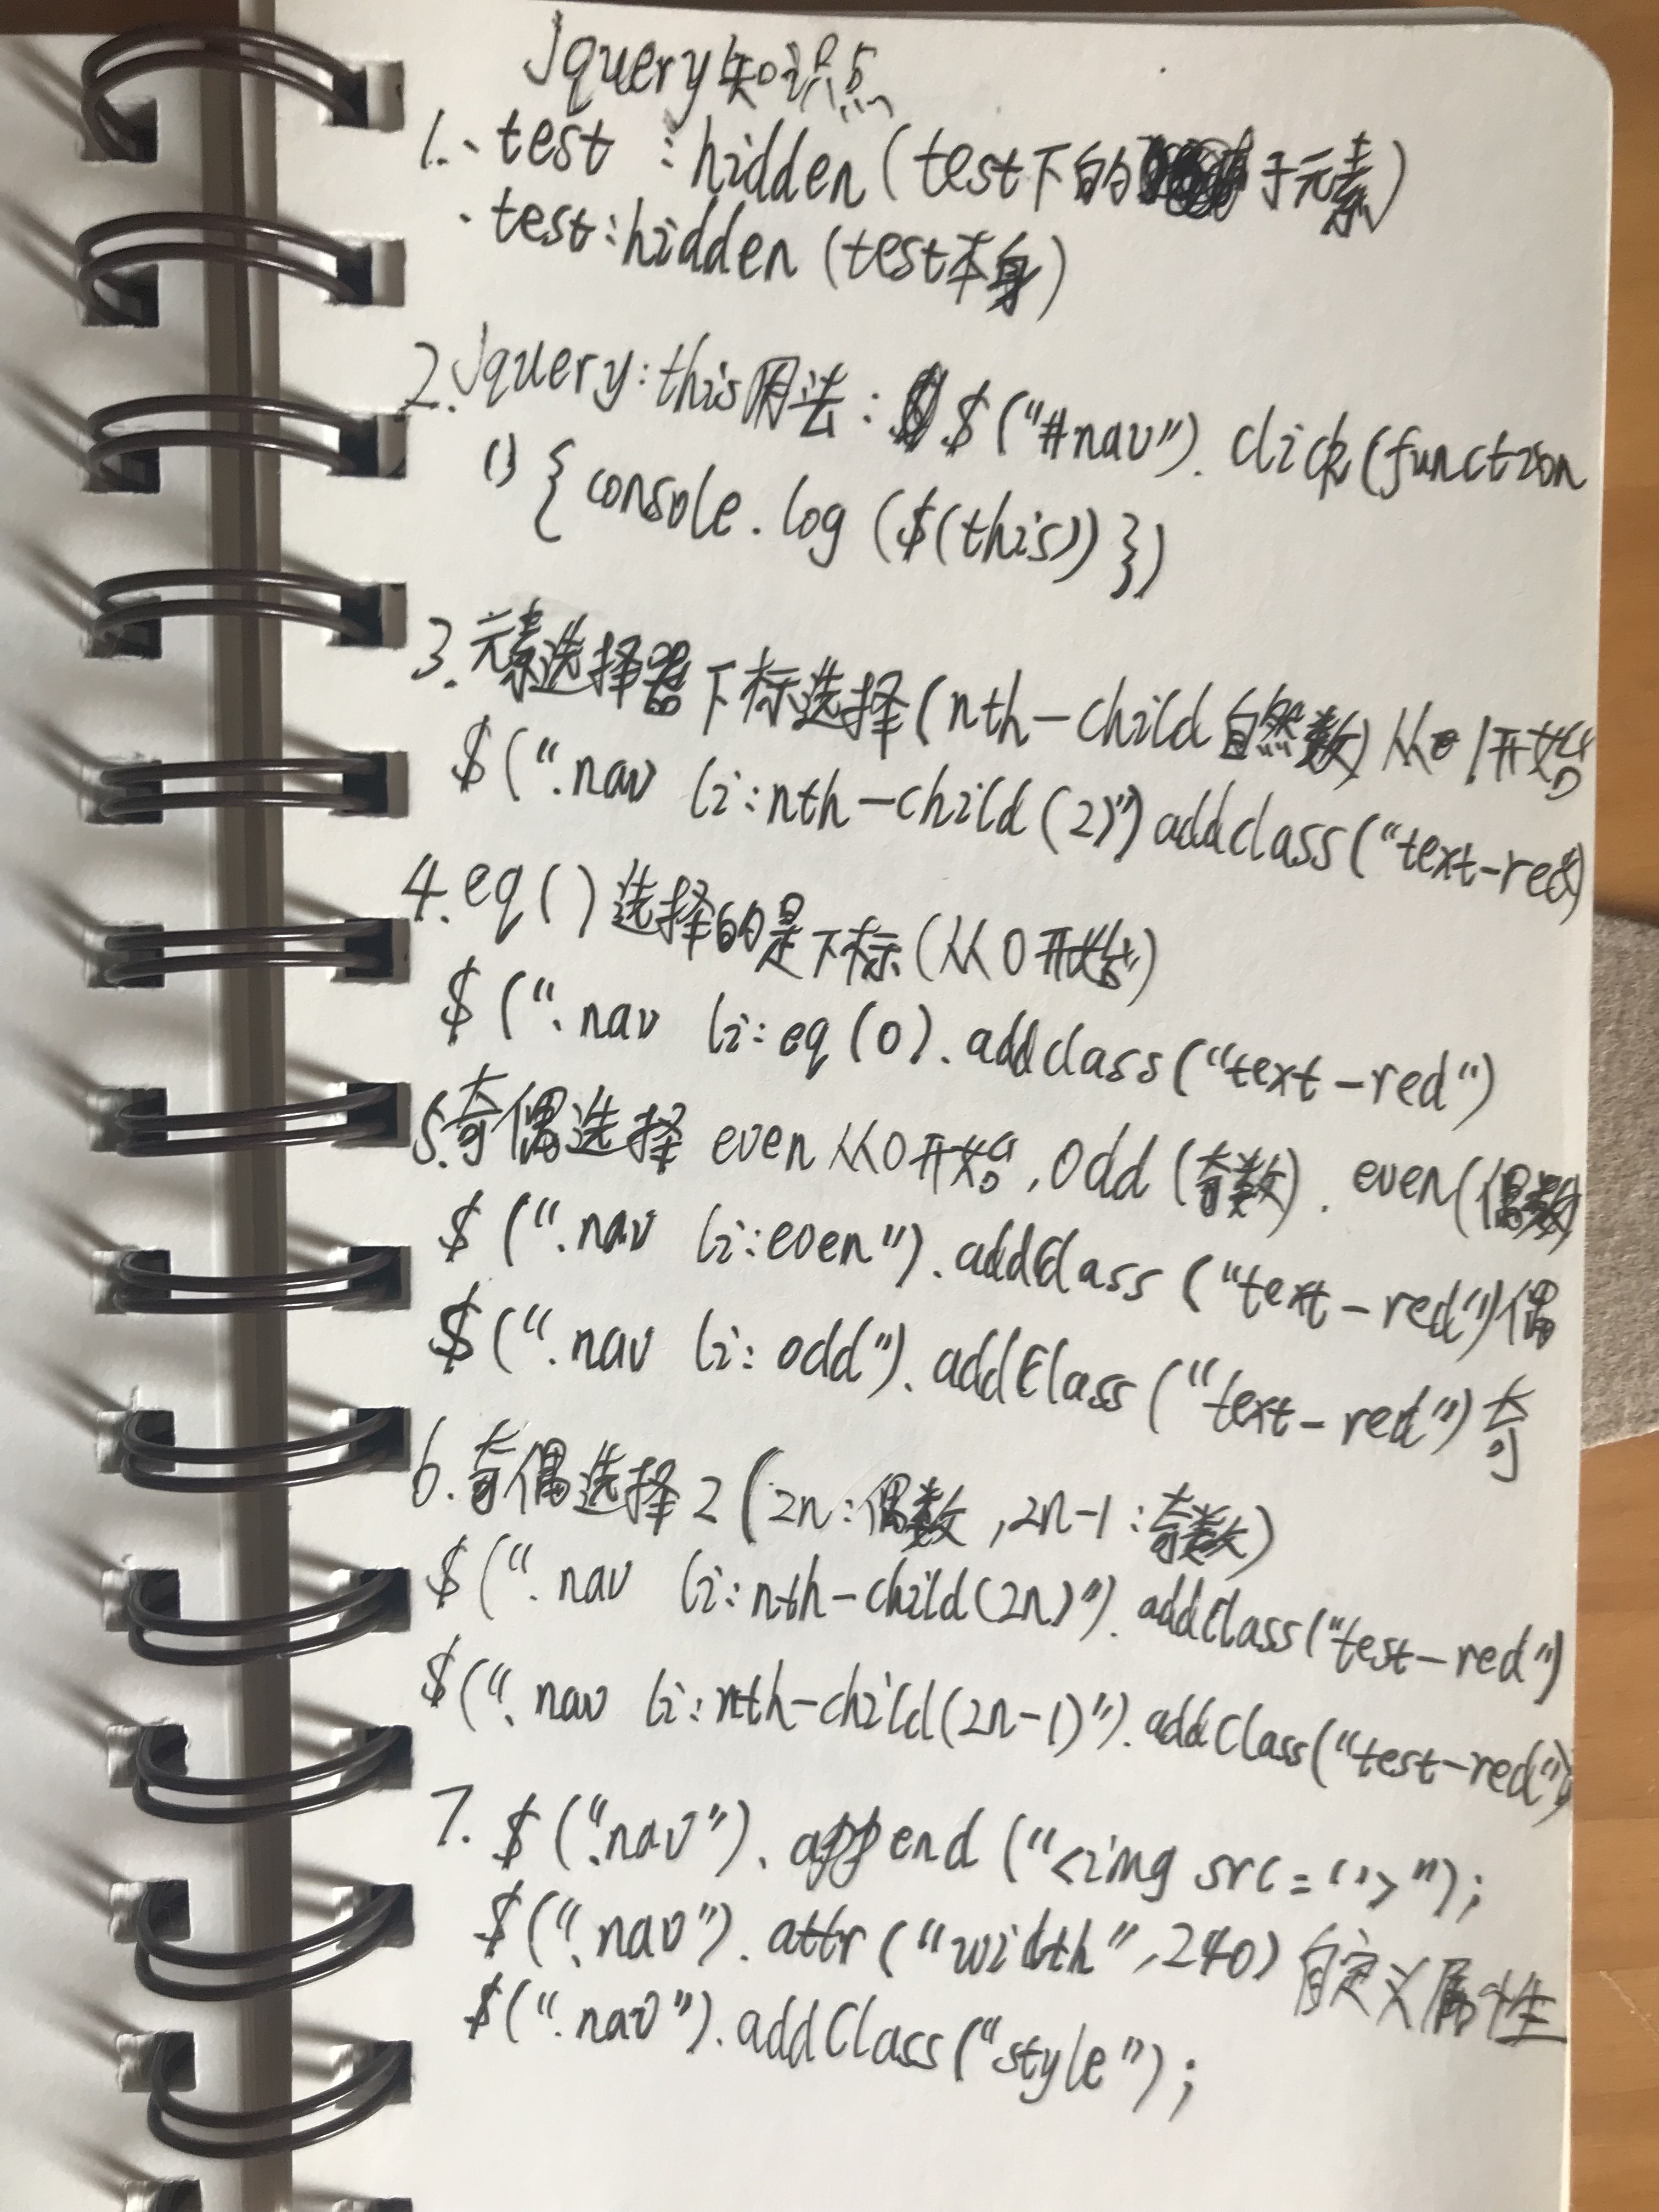 Jquery知识点
1. .test :hidden (test下的子元素)
.test:hidden (test本身)
2. Jquery:this用法: $("#nav"). click(function
() { console.log ($(this)) })
3. 元素选择器下标选择(nth-child自然数)从1开始
$(".nav li:nth-child(2)") addclass("text-red")
4. eq()选择的是下标(从0开始)
$(".nav li:eq(0).addclass("text-red")
5. 奇偶选择 even从0开始, odd (奇数). even(偶数)
$(".nav li:even").addClass ("text-red")偶
$(".nav li: odd").addClass ("text-red")奇
6. 奇偶选择2 (2n:偶数, 2n-1:奇数)
$(".nav li:nth-child(2n)").addClass("test-red")
$(".nav li:nth-child(2n-1)").addClass("test-red")
7. $(".nav").append ("<img src=''>");
$(".nav").attr("width",240)自定义属性
$(".nav").addClass("style");